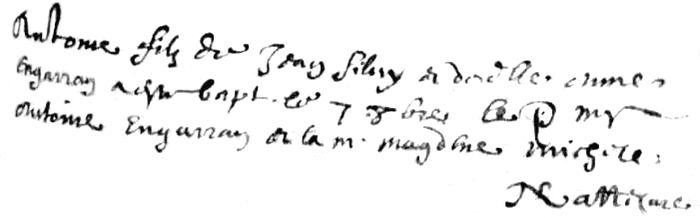 Antoine filz de Jean silvy et de dlle anne
Engarran a este bapt. le 7 8bre le p. mr
Antoine Engarran et la m. magdne